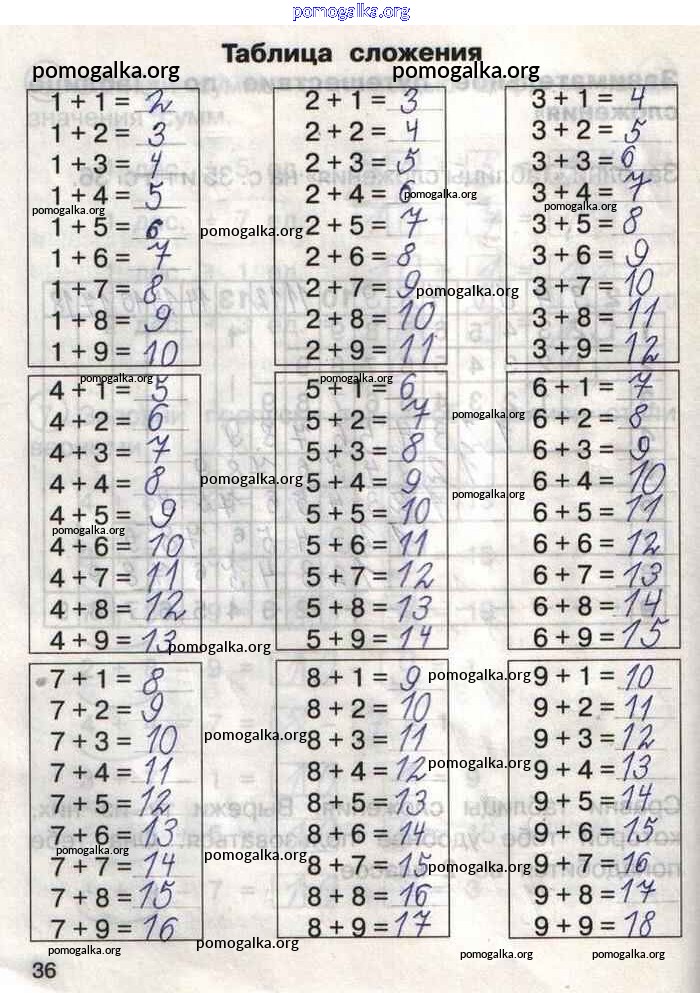 pomogalka.org
Таблица сложения
pomogalka.org pomogalka.org
1 + 1 = 2
1 + 2 = 3
1 + 3 = 4
1 + 4 = 5
pomogalka.org
1 + 5 = 6
1 + 6 = 7
1 + 7 = 8
1 + 8 = 9
1 + 9 = 10
2 + 1 = 3
2 + 2 = 4
2 + 3 = 5
2 + 4 = 6
pomogalka.org
2 + 5 = 7
pomogalka.org
2 + 6 = 8
2 + 7 = 9
pomogalka.org
2 + 8 = 10
2 + 9 = 11
3 + 1 = 4
3 + 2 = 5
3 + 3 = 6
3 + 4 = 7
pomogalka.org
3 + 5 = 8
3 + 6 = 9
3 + 7 = 10
3 + 8 = 11
3 + 9 = 12
pomogalka.org
4 + 1 = 5
4 + 2 = 6
4 + 3 = 7
4 + 4 = 8
4 + 5 = 9
pomogalka.org
4 + 6 = 10
4 + 7 = 11
4 + 8 = 12
4 + 9 = 13
pomogalka.org
pomogalka.org
5 + 1 = 6
5 + 2 = 7
5 + 3 = 8
pomogalka.org
5 + 4 = 9
5 + 5 = 10
5 + 6 = 11
5 + 7 = 12
5 + 8 = 13
5 + 9 = 14
6 + 1 = 7
pomogalka.org
6 + 2 = 8
6 + 3 = 9
6 + 4 = 10
pomogalka.org
6 + 5 = 11
6 + 6 = 12
6 + 7 = 13
6 + 8 = 14
6 + 9 = 15
7 + 1 = 8
7 + 2 = 9
7 + 3 = 10
7 + 4 = 11
7 + 5 = 12
7 + 6 = 13
pomogalka.org
7 + 7 = 14
7 + 8 = 15
7 + 9 = 16
pomogalka.org
8 + 1 = 9
pomogalka.org
8 + 2 = 10
pomogalka.org
8 + 3 = 11
8 + 4 = 12
pomogalka.org
8 + 5 = 13
8 + 6 = 14
pomogalka.org
8 + 7 = 15
pomogalka.org
8 + 8 = 16
8 + 9 = 17
pomogalka.org
9 + 1 = 10
9 + 2 = 11
9 + 3 = 12
9 + 4 = 13
9 + 5 = 14
9 + 6 = 15
9 + 7 = 16
9 + 8 = 17
9 + 9 = 18
pomogalka.org pomogalka.org
36